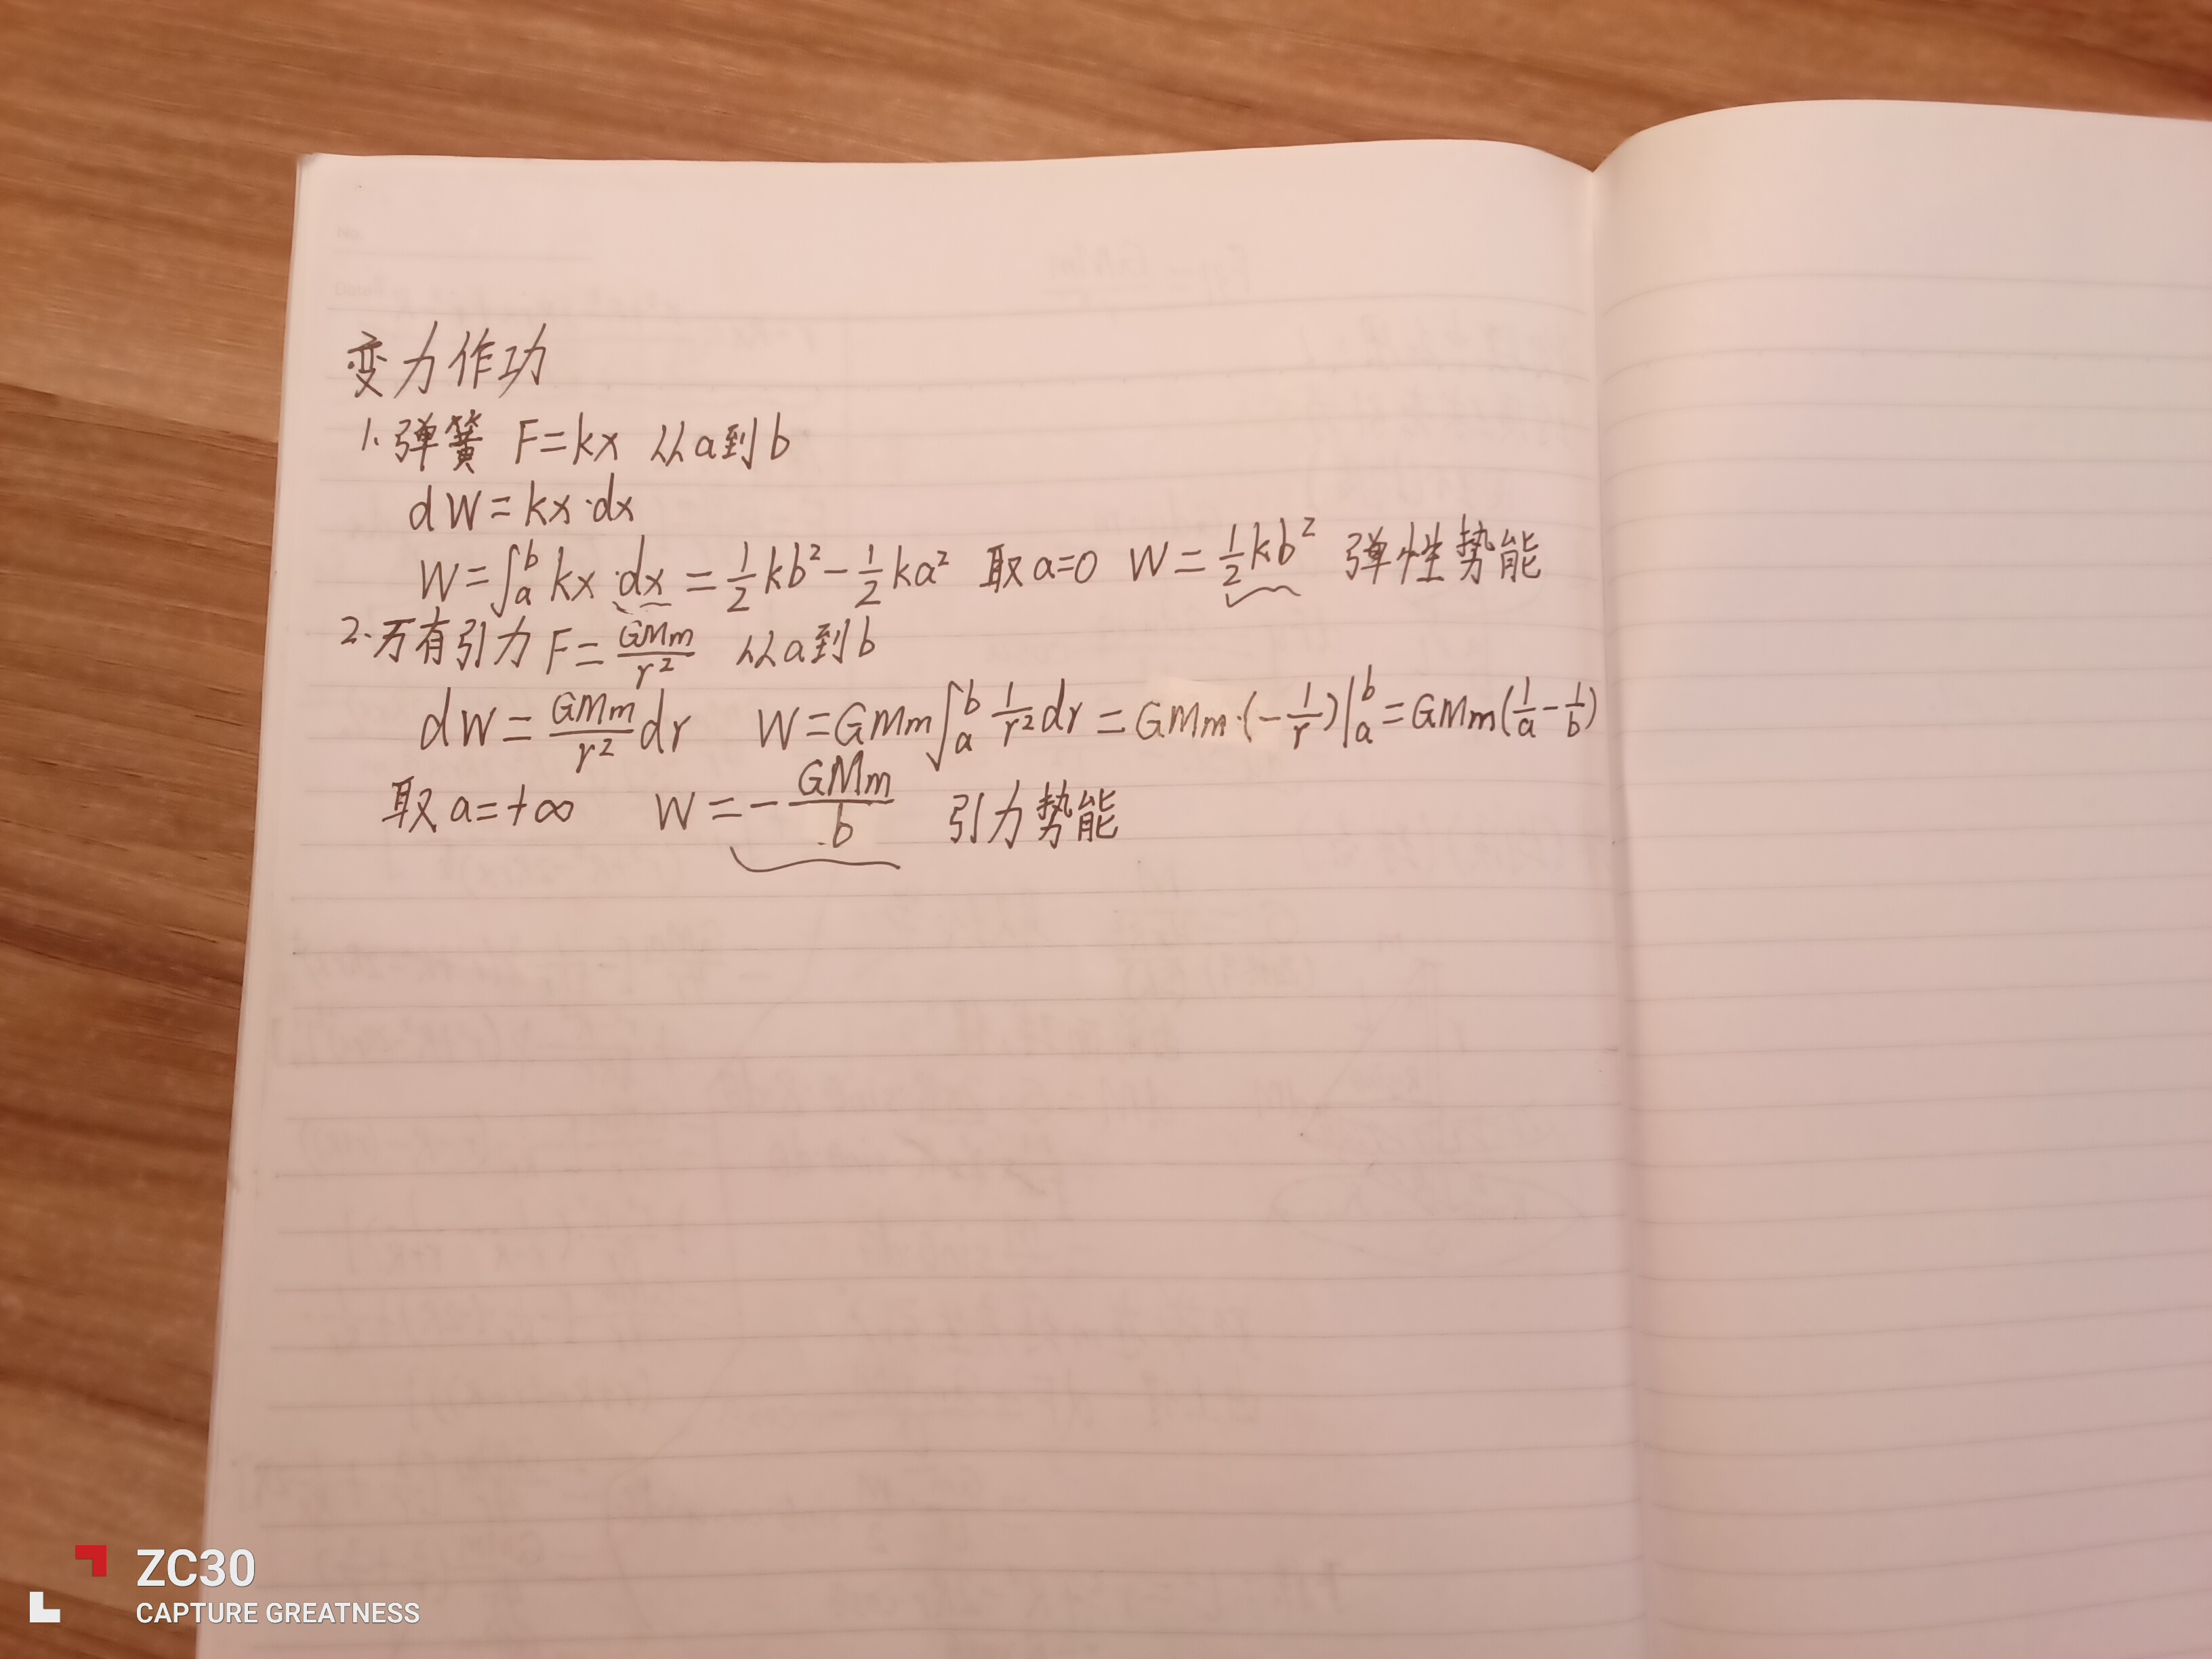 变力作功
1. 弹簧 F=kx 从a到b
dW=kx·dx
W=∫_a^b kx·dx=1/2kb²-1/2ka² 取a=0 W=1/2kb² 弹性势能
2.万有引力 F=GMm/r² 从a到b
dW=GMm/r² dr W=GMm∫_a^b 1/r² dr=GMm·(-1/r)|_a^b=GMm(1/a-1/b)
取a=+∞ W=-GMm/b 引力势能
ZC30
CAPTURE GREATNESS